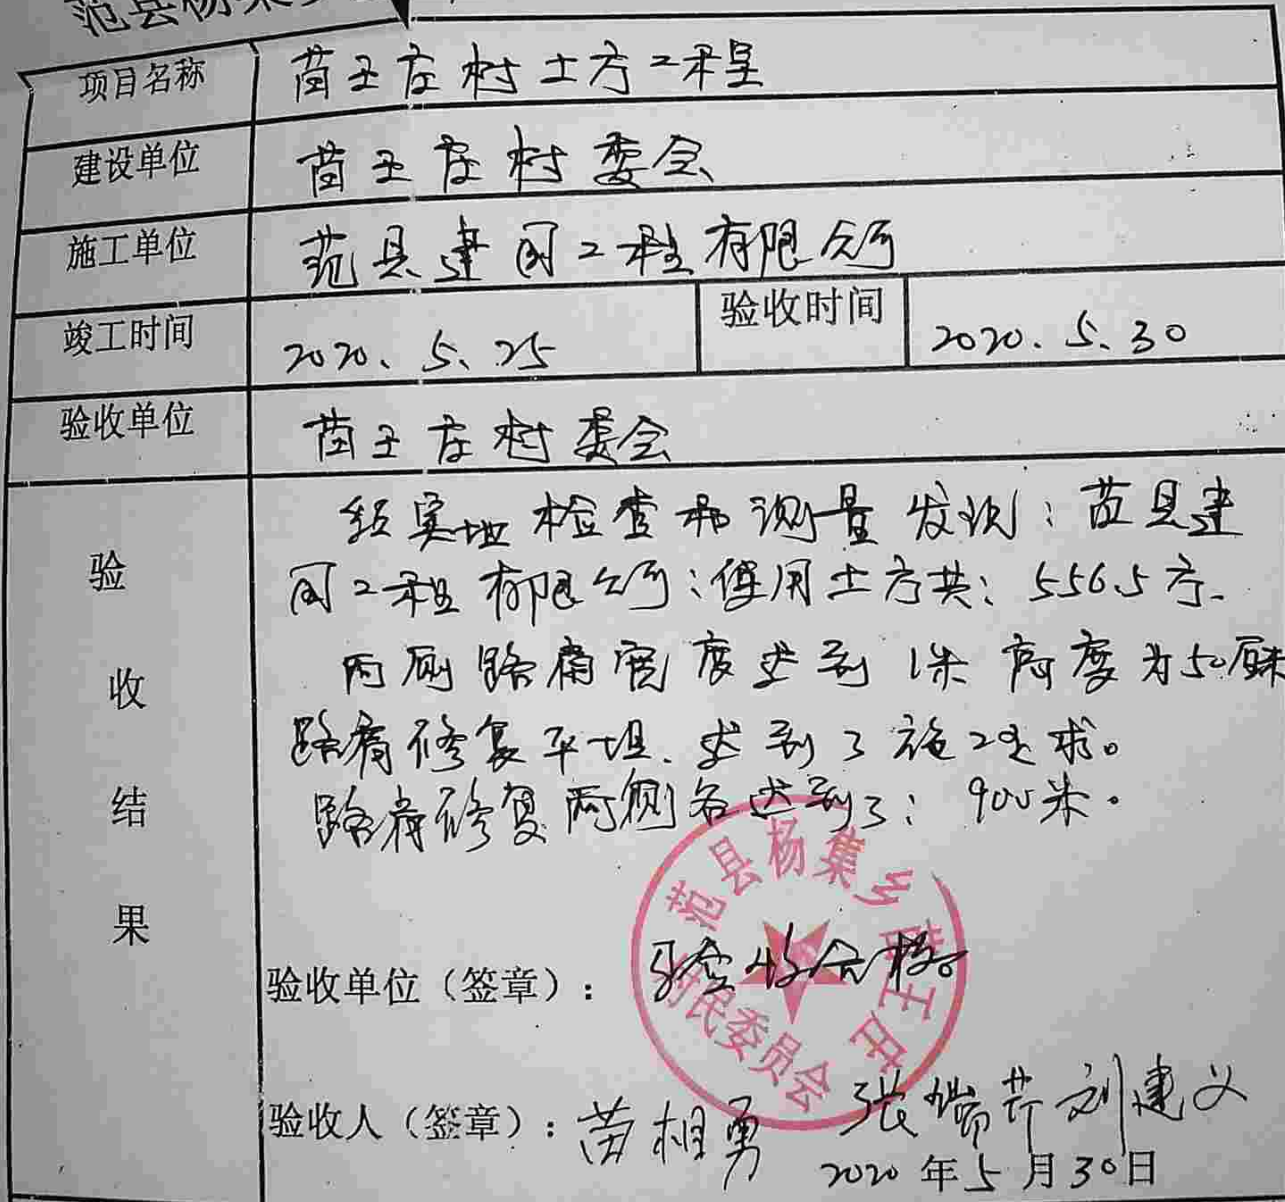 范县杨集
项目名称 苗王庄村土方工程
建设单位 苗王庄村委会
施工单位 范县建国工程有限公司
竣工时间 2020.5.25 验收时间 2020.5.30
验收单位 苗王庄村委会
验收结果
经实地检查和测量发现：范县建
国工程有限公司：使用土方共：556.5方.
两侧路肩宽度达到1米高度为50厘米
路肩修复平坦.达到了施工要求。
路肩修复两侧各达到了：900米。
范县杨集乡苗王庄村民委员会
验收单位（签章）：验收合格。
验收人（签章）：苗相勇 张瑞芹 刘建义
2020年5月30日